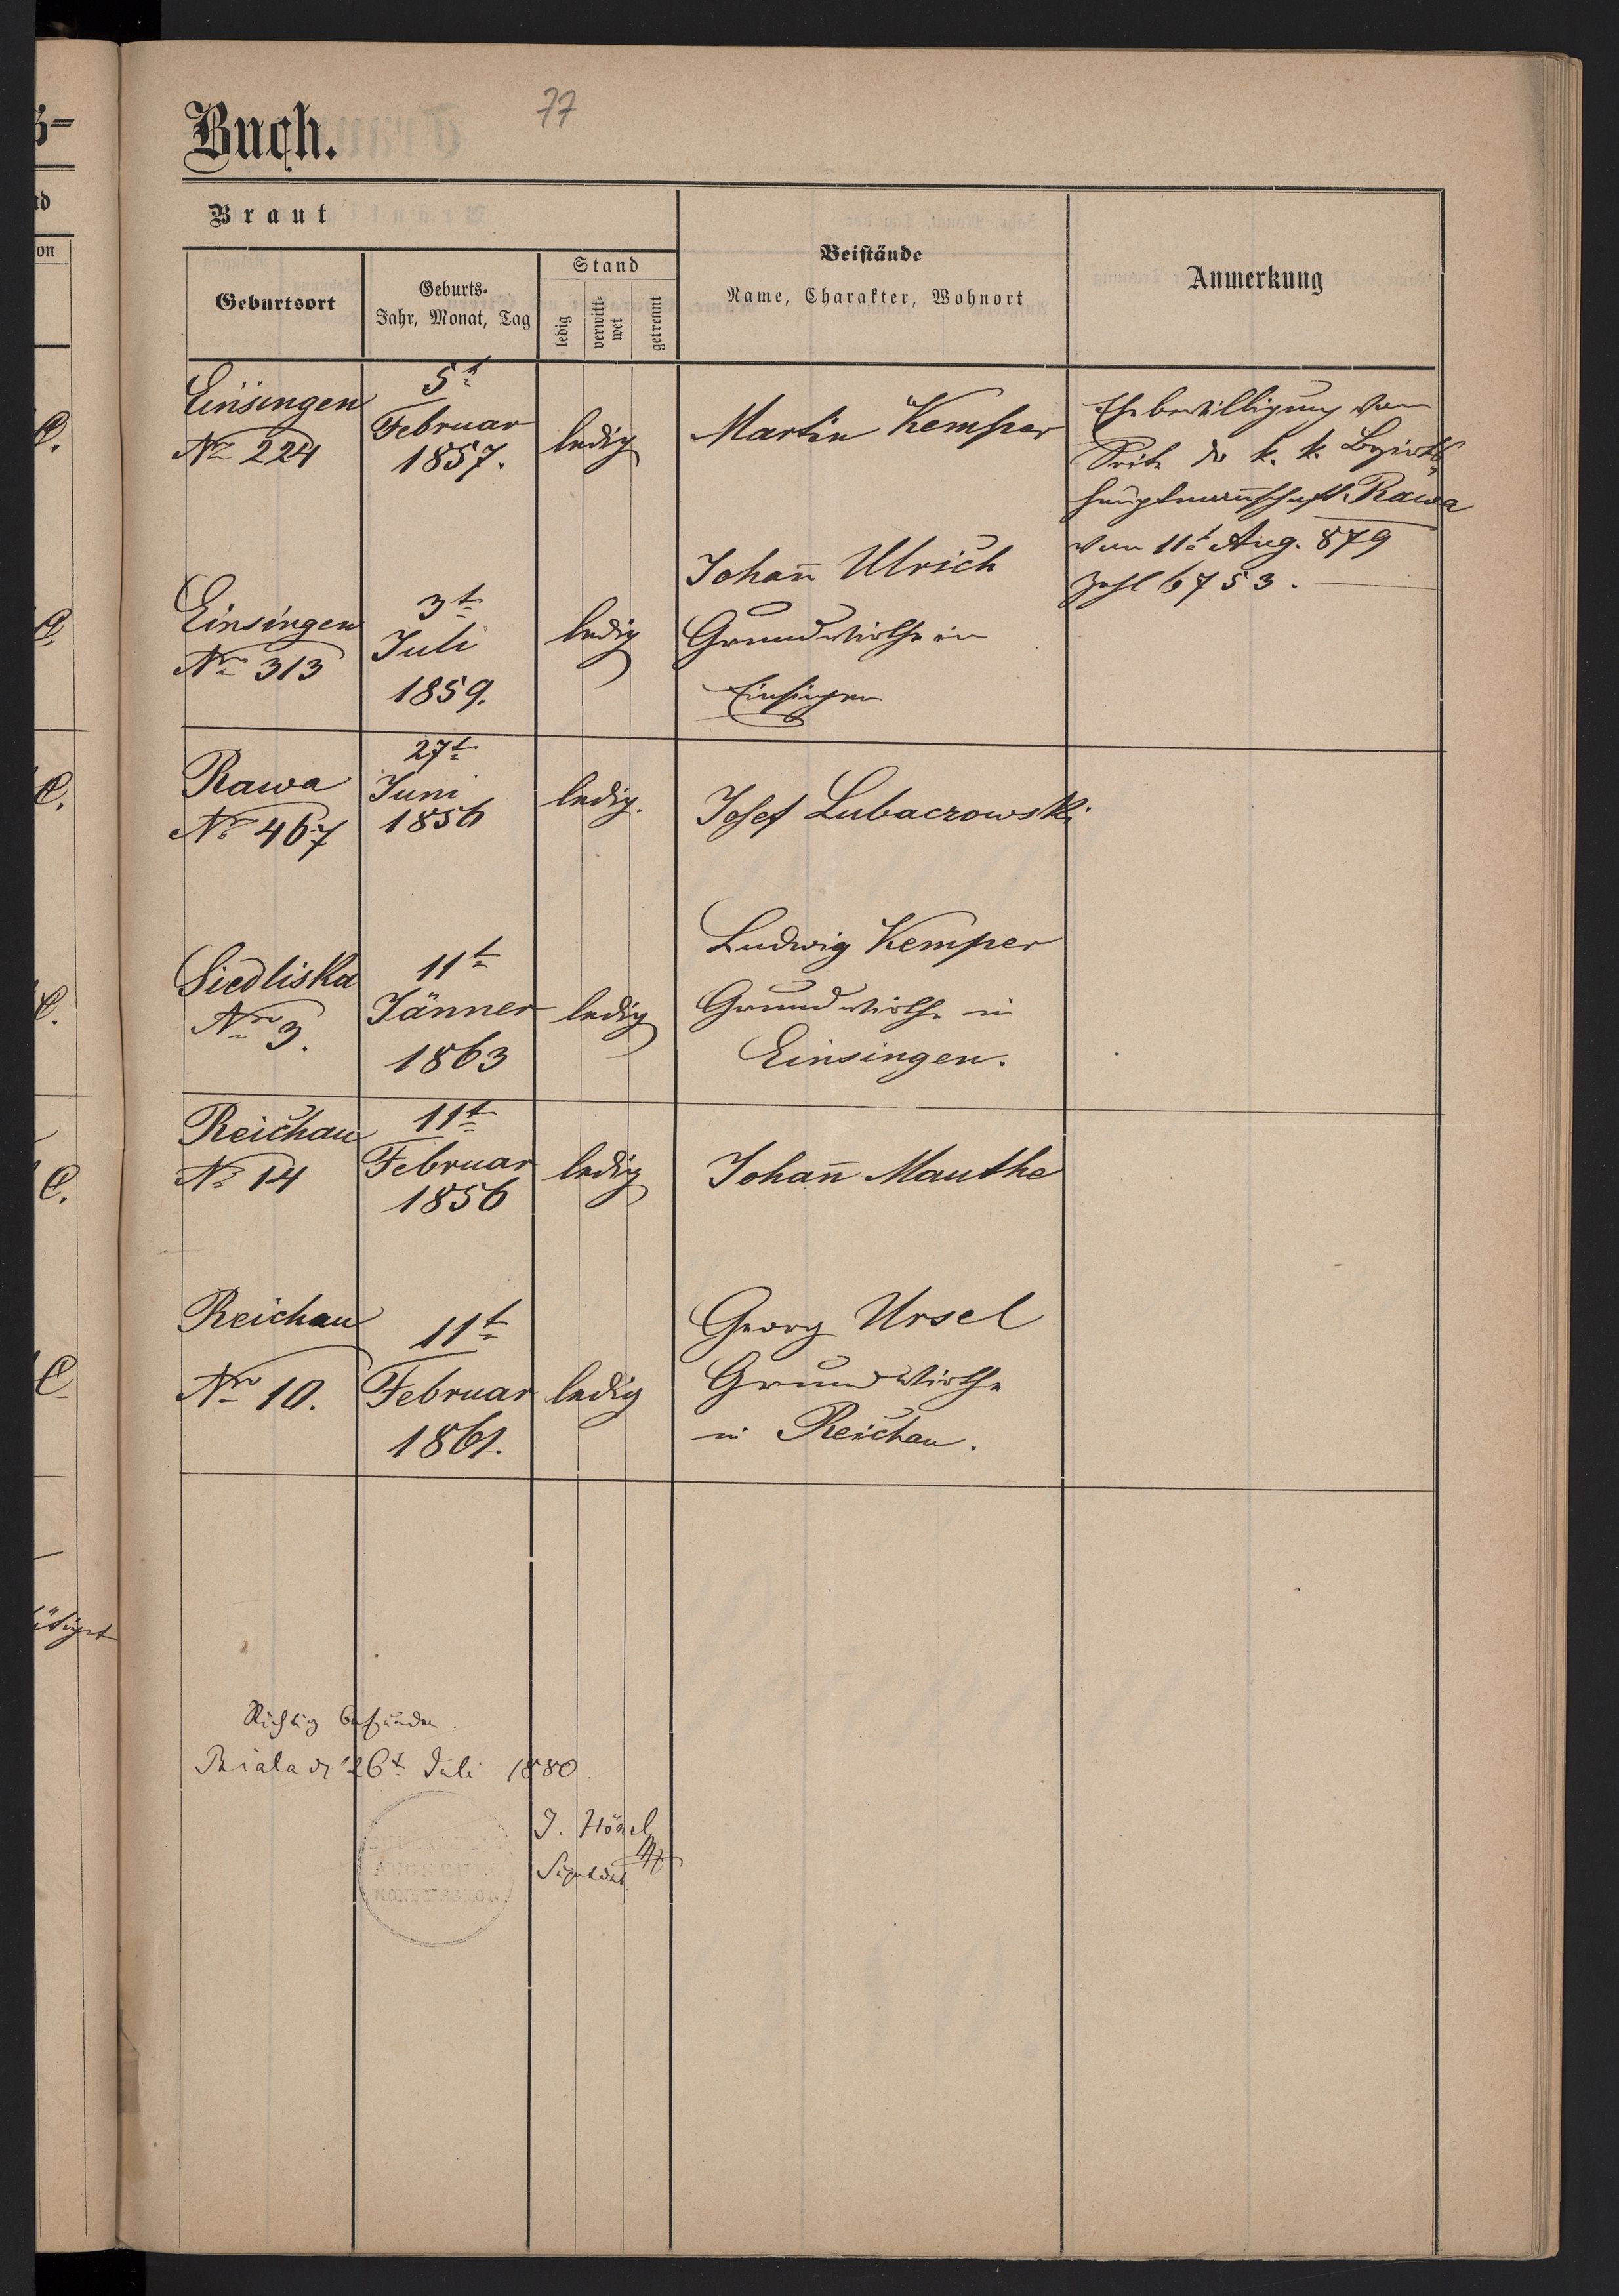 77
Buch.
Braut
Geburtsort
Geburts-
Jahr, Monat, Tag
Stand
ledig
verwitt-
wet
getrennt
Beistände
Name, Charakter, Wohnort
Anmerkung
Einsingen
Nro 224
5t
Februar
1857.
ledig
Martin Kemper
Ehebewilligung von
Seite der k. k. Bezirks
hauptmannschaft Rawa
vom 11t Aug. 879
Zahl 6753.
Einsingen
Nro 313
3t
Juli
1859.
ledig
Johan̄ Ulrich
Grundwirthe in
Einsingen
Rawa
Nro 467
27t
Juni
1856
ledig.
Josef Lubaczowski
Siedliska
Nro 3.
11t
Jänner
1863
ledig
Ludwig Kemper
Grundwirthe in
Einsingen.
Reichau
Nro 14
11t
Februar
1856
ledig
Johan̄ Mauthe
Reichau
Nro 10.
11t
Februar
1861.
ledig
Georg Ursel
Grundwirthe
in Reichau.
Richtig befunden.
Biala d. 26t Juli 1880.
J. Hönel
AUGSBURG
KONFESSION